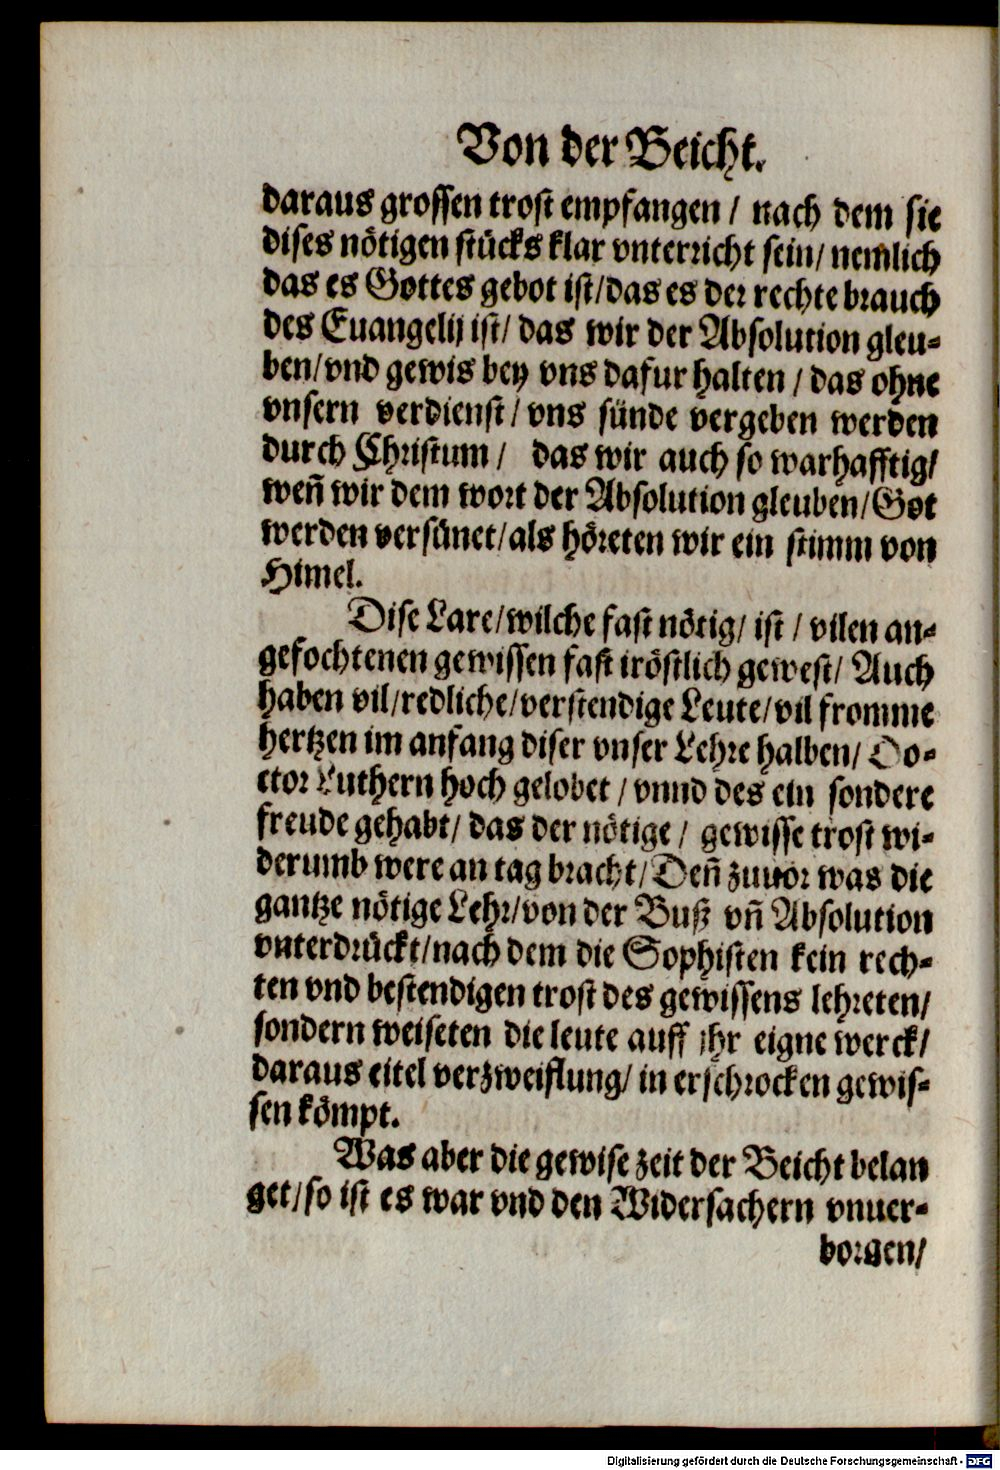 Von der Beicht.
daraus grossen trost empfangen / nach dem sie
dises nötigen stücks klar vnterricht sein / nemlich
das es Gottes gebot ist / das es der rechte brauch
des Euangelij ist / das wir der Absolution gleu-
ben / vnd gewis bey vns dafur halten / das ohne
vnsern verdienst / vns sünde vergeben werden
durch Christum / das wir auch so warhafftig /
weñ wir dem wort der Absolution gleuben / Got
werden versünet / als höreten wir ein stimm von
Himel.
Dise Lare / wilche fast nötig / ist / vilen an-
gefochtenen gewissen fast tröstlich gewest / Auch
haben vil / redliche / verstendige Leute / vil fromme
hertzen im anfang diser vnser Lehre halben / Do-
ctor Luthern hoch gelobet / vnnd des ein sondere
freude gehabt / das der nötige / gewisse trost wi-
derumb were an tag bracht / Deñ zuuor was die
gantze nötige Lehr / von der Buß vñ Absolution
vnterdrückt / nach dem die Sophisten kein rech-
ten vnd bestendigen trost des gewissens lehreten /
sondern weiseten die leute auff jhr eigne werck /
daraus eitel verzweiflung / in erschrocken gewis-
sen kömpt.
Was aber die gewise zeit der Beicht belan
get / so ist es war vnd den Widersachern vnuer-
borgen /
Digitalisierung gefördert durch die Deutsche Forschungsgemeinschaft - DFG